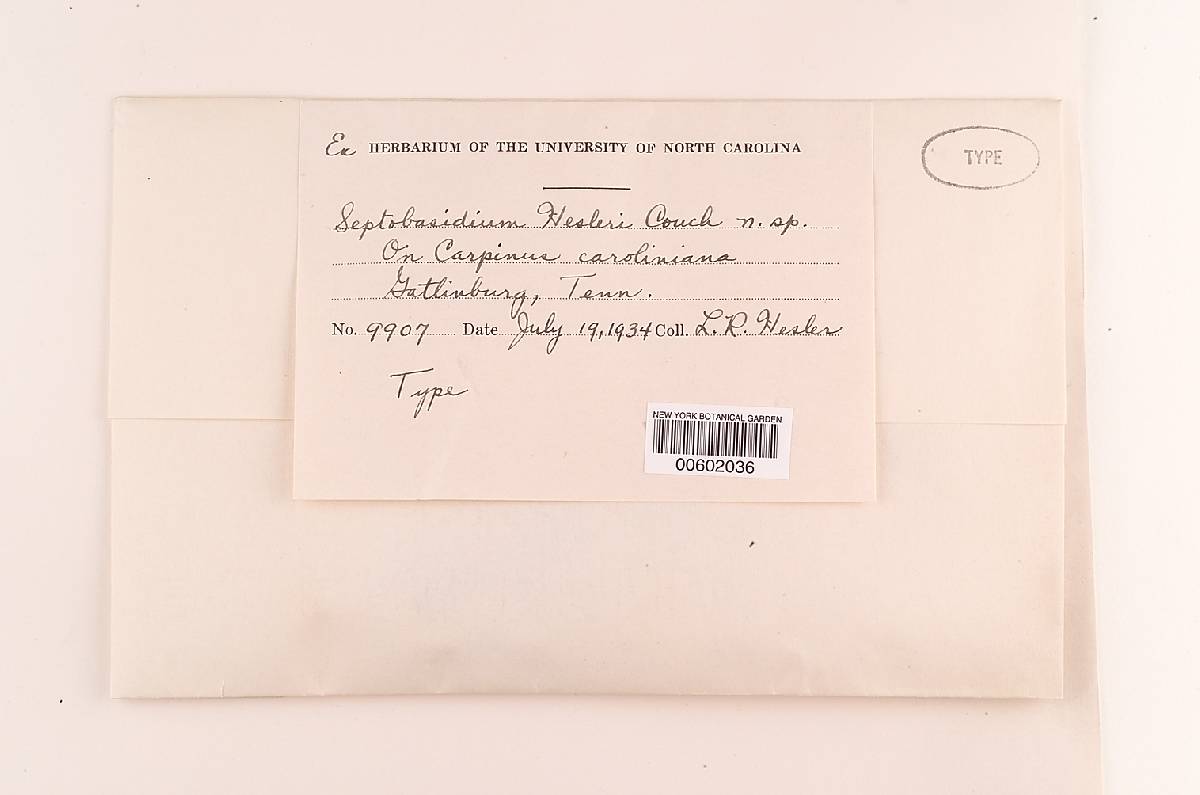 Ex HERBARIUM OF THE UNIVERSITY OF NORTH CAROLINA
TYPE
Septobasidium Hesleri Couch n. sp.
On Carpinus caroliniana
Gatlinburg, Tenn.
No. 9907 Date July 19, 1934 Coll. L. R. Hesler
Type
NEW YORK BOTANICAL GARDEN
00602036